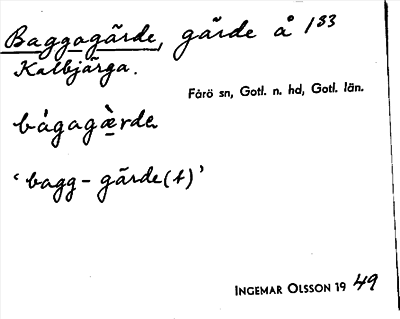 Baggagärde, gärde å 1³³
Kalbjärga.
Fårö sn, Gotl. n. hd, Gotl. län.
bágagæ̀rdɛ
‘bagg-gärde(t)’
INGEMAR OLSSON 19 49